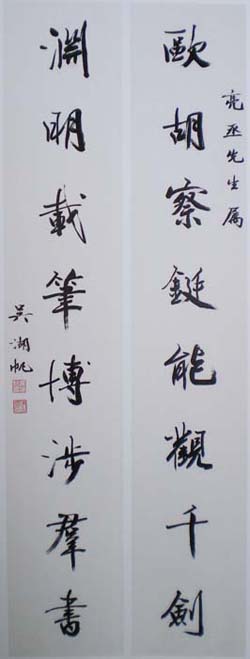 亮丞先生屬
歐胡察鋌能觀千劍
淵明載筆博涉羣書
吳湖帆